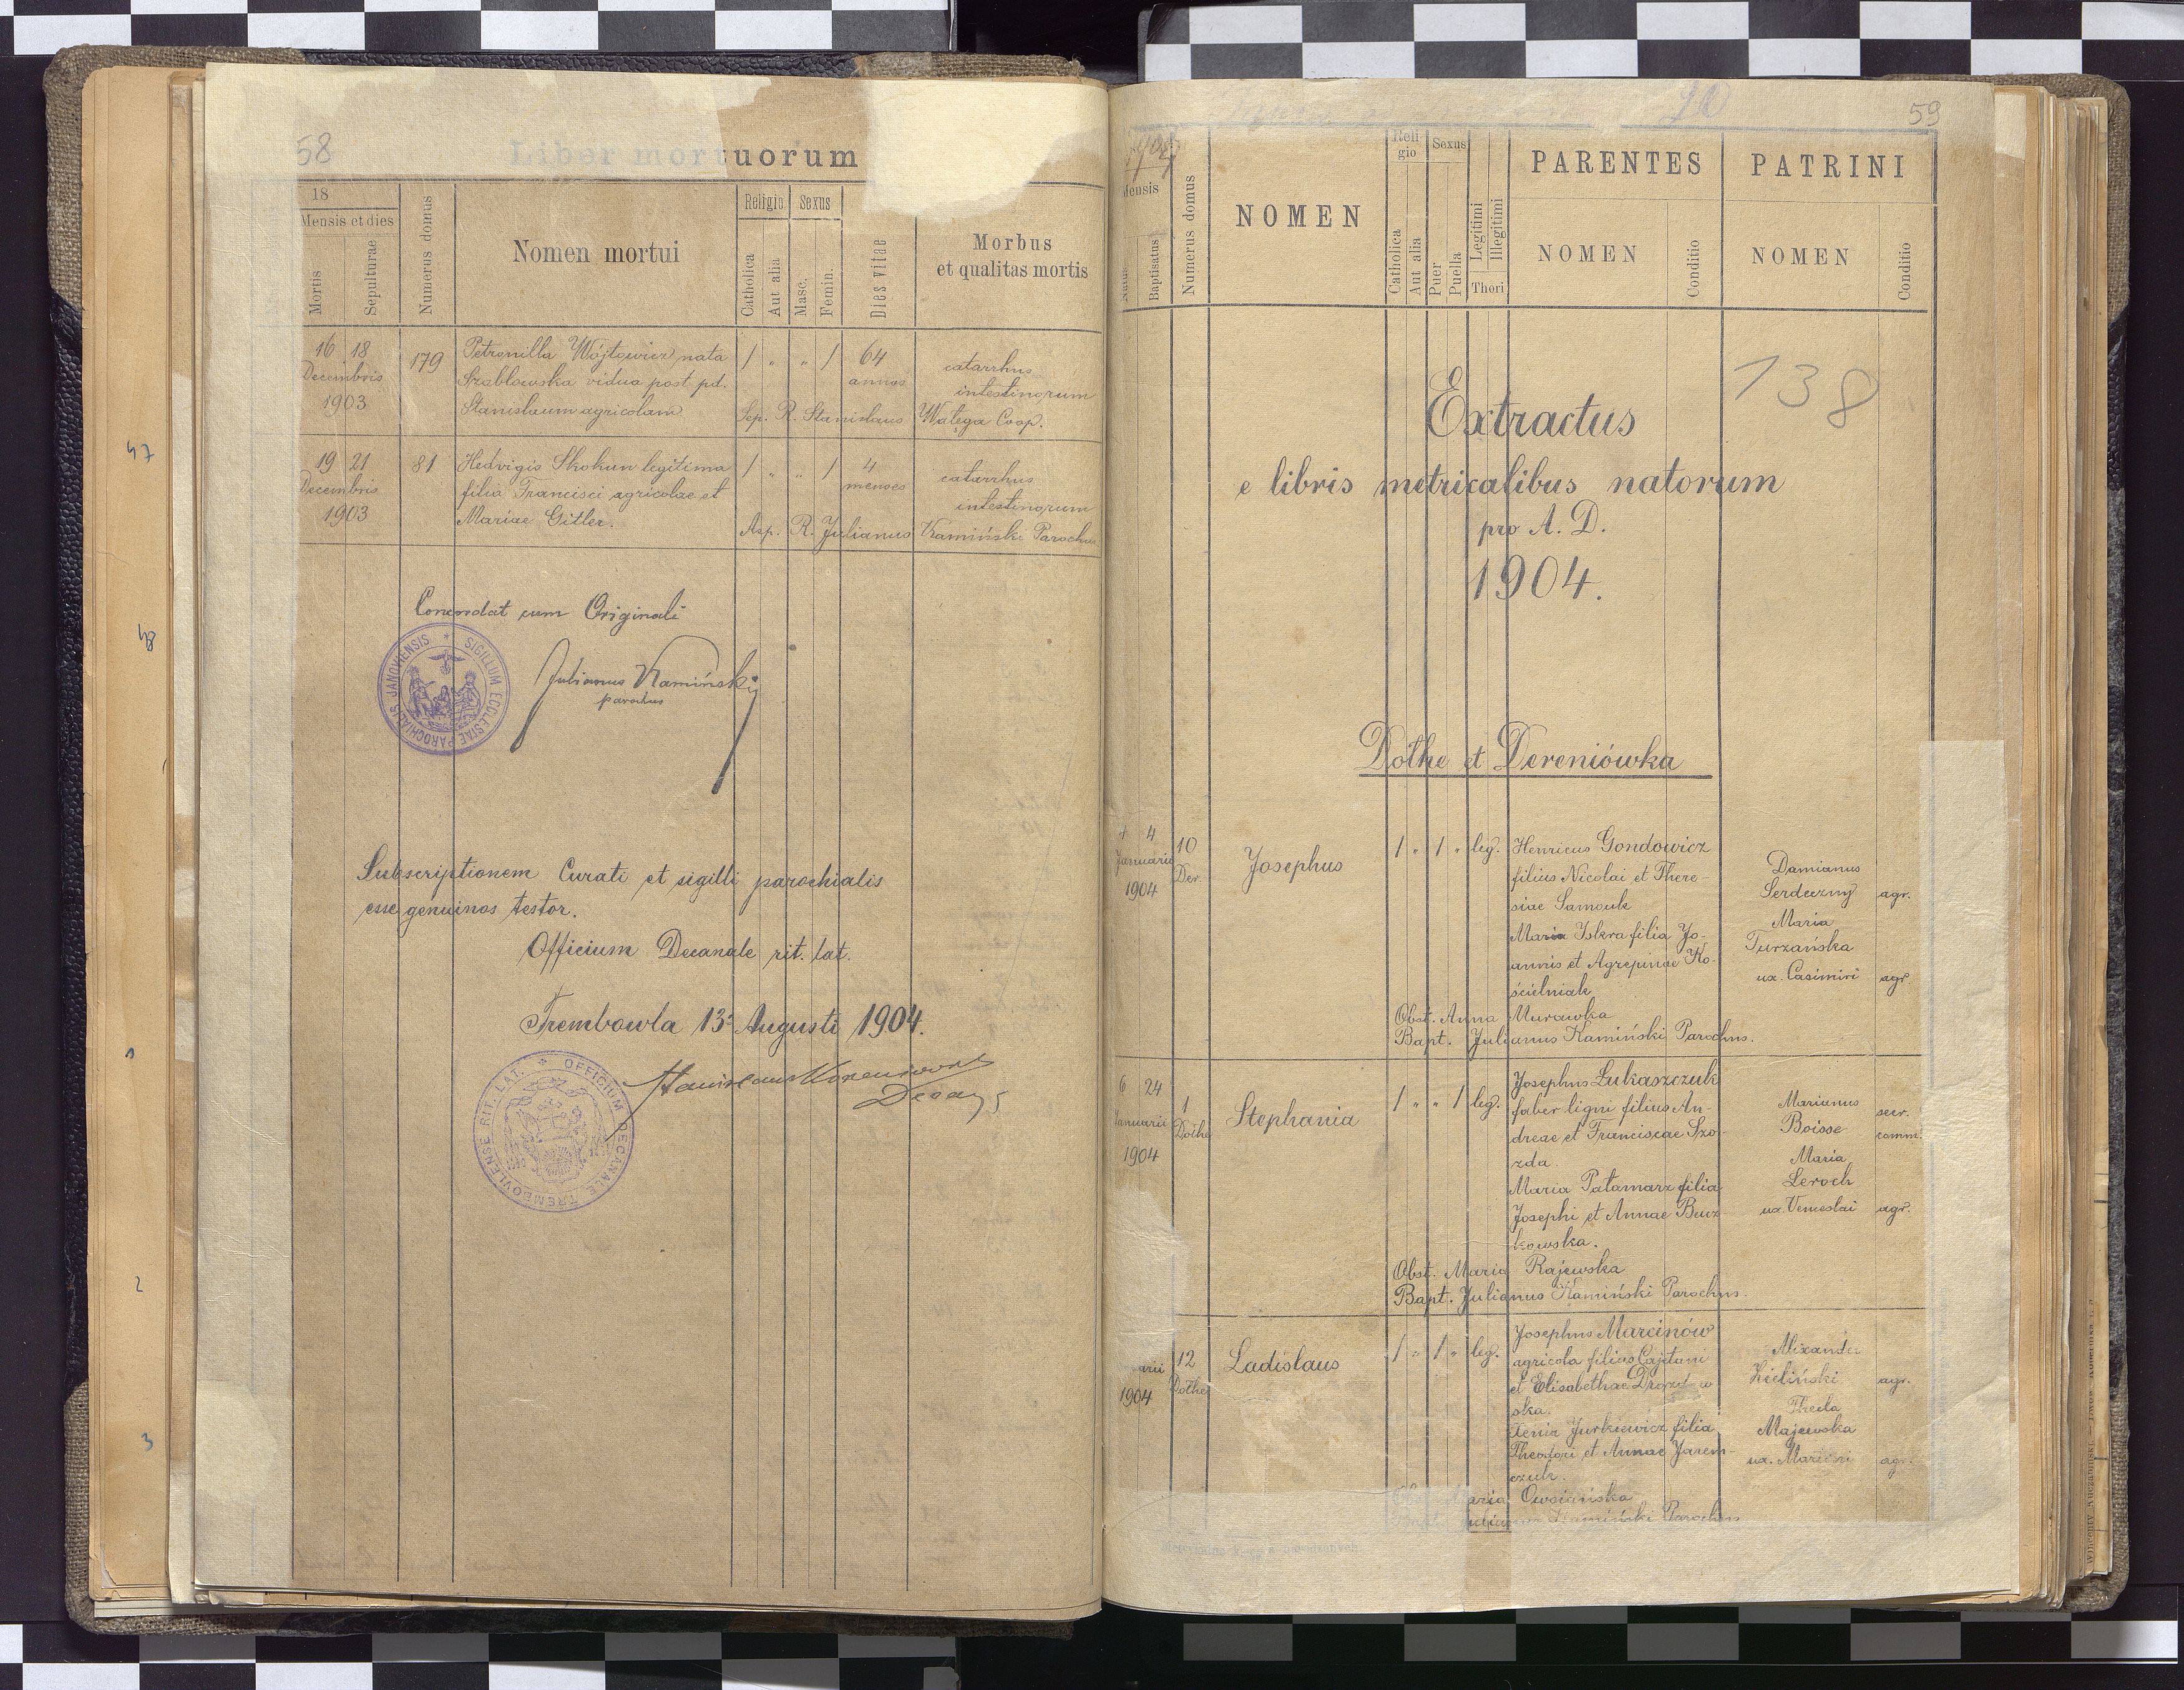 58
Liber mortuorum
18
Mensis et dies
Mortis
Sepulturae
Numerus domus
Nomen mortui
Religio
Catholica
Aut alia
Sexus
Masc.
Femin.
Dies vitae
Morbus
et qualitas mortis
16 18
Decembris
1903
179
Petronilla Wójtowicz nata
Szablowska vidua post pd.
Stanislaum agricolam
1 " " 1
64
annos
catarrhus
intestinorum
Sep. R. Stanislaus Wałęga Coop.
19 21
Decembris
1903
81
Hedvigis Skokun legitima
filia Francisci agricolae et
Mariae Gitler.
1 " " 1
4
menses
catarrhus
intestinorum
Asp. R. Julianus Kamiński Parochus
Concordat cum Originali
SIGILLUM ECCLESIAE PAROCHIALIS JANOVIENSIS
Julianus Kamiński
parochus
Subscriptionem Curati et sigilli parochialis
esse genuinos testor.
Officium Decanale rit. lat.
Trembowla 13 Augusti 1904.
OFFICIUM DECANALE TREMBOVLIENSE RIT. LAT.
Decanus
47
48
1
2
3
20
59
1904
Mensis
Natus
Baptisatus
Numerus domus
NOMEN
Religio
Catholica
Aut alia
Sexus
Puer
Puella
Legitimi
Illegitimi
Thori
PARENTES
NOMEN
Conditio
PATRINI
NOMEN
Conditio
138
Extractus
e libris metricalibus natorum
pro A. D.
1904.
Dołhe et Dereniówka
4
Januarii
1904
10
Der.
Josephus
1 " 1 " leg.
Henricus Gondowicz
filius Nicolai et There-
siae Samouk
Maria Iskra filia Jo-
annis et Agrepinae Ko-
ścielniak
Damianus
Serduczny agr.
Maria
Turzańska
ux. Casimiri agr.
Obst. Anna Murawka
Bapt. Julianus Kamiński Parochus.
6 24
Januarii
1904
1
Dołhe
Stephania
1 " " 1 leg.
Josephus Łukaszczuk
faber ligni filius An-
dreae et Franciscae Szo-
zda
Maria Pałamarz filia
Josephi et Annae Bucz
kowska.
Marianus
Boisse secr. comm.
Maria
Leroch
ux. Venceslai agr.
Obst. Maria Rajewska
Bapt. Julianus Kamiński Parochus.
1904
12
Dołhe
Ladislaus
1 " 1 " leg.
Josephus Marcinów
agricola filius Cajetani
et Elisabethae Drozdow
ska.
Xenia Jurkiewicz filia
Theodori et Annae Jarem-
czuk.
Alexander
Zieliński agr.
Thecla
Majewska
ux. agr.
Owsiańska
Kamiński Parochus